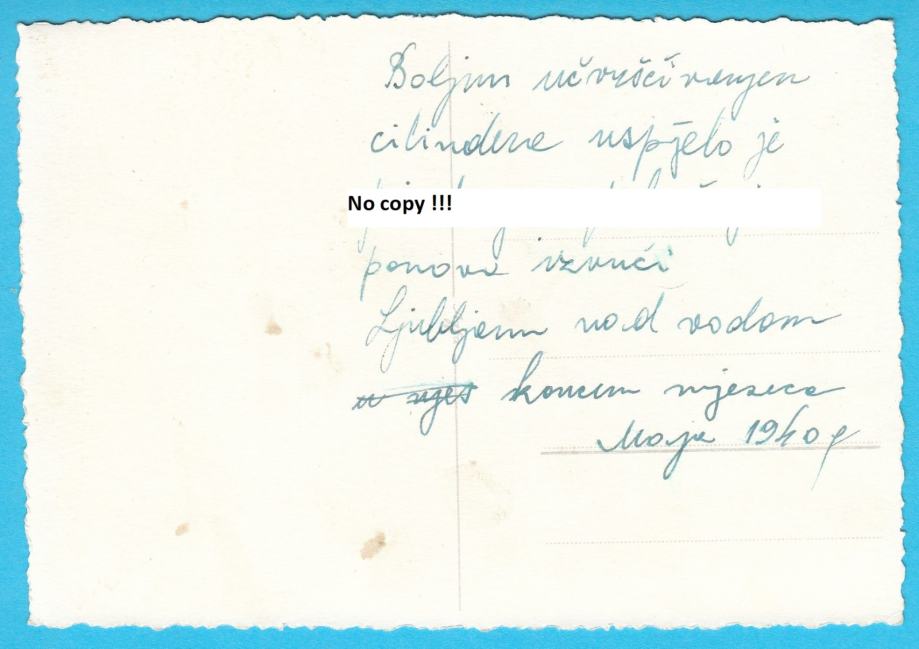 Boljim učvršćivanjem
cilindera uspjelo je
No copy !!!
ponova izvući
Ljubljanu nad vodom
koncem mjeseca
Maja 1940 g